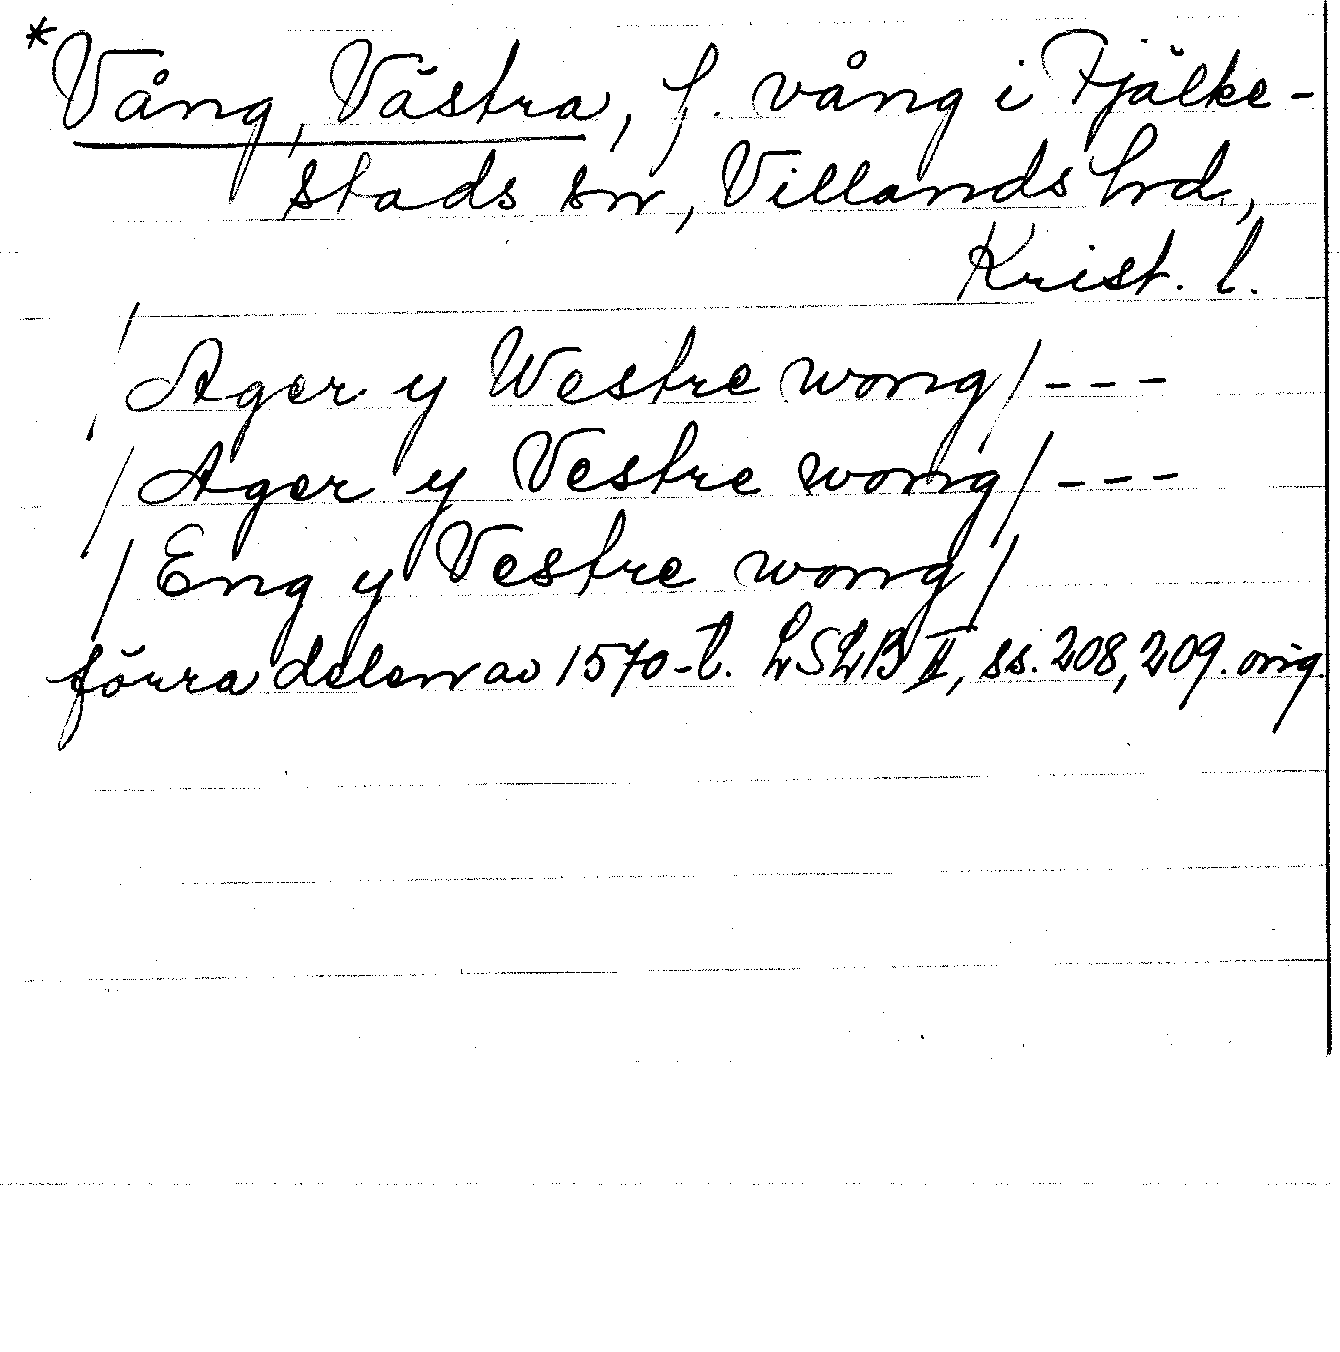 *Vång, Västra, f. vång i Fjälke-
stads sn, Villands hd,
Krist. l.
/Ager y Westre wong/ - - -
/Ager y Vestre wong/ - - -
/Eng y Vestre wong/
förra delen av 1570-t. LSLB II, ss. 208, 209. orig.